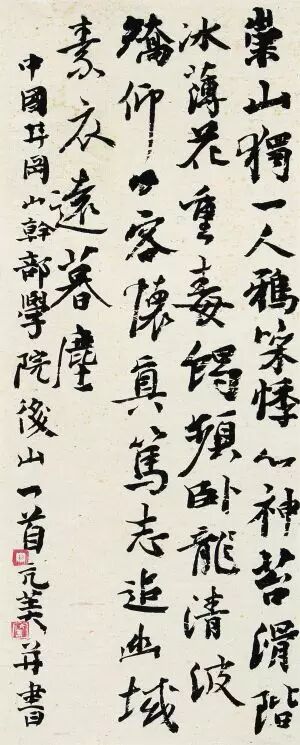 崇山獨一人鴉噪悸心神苔滑階
冰薄花重毒頻臥龍清波
矯仰客懷真篤志追幽域
素衣遠暮塵
中國井岡山幹部學院後山一首并書